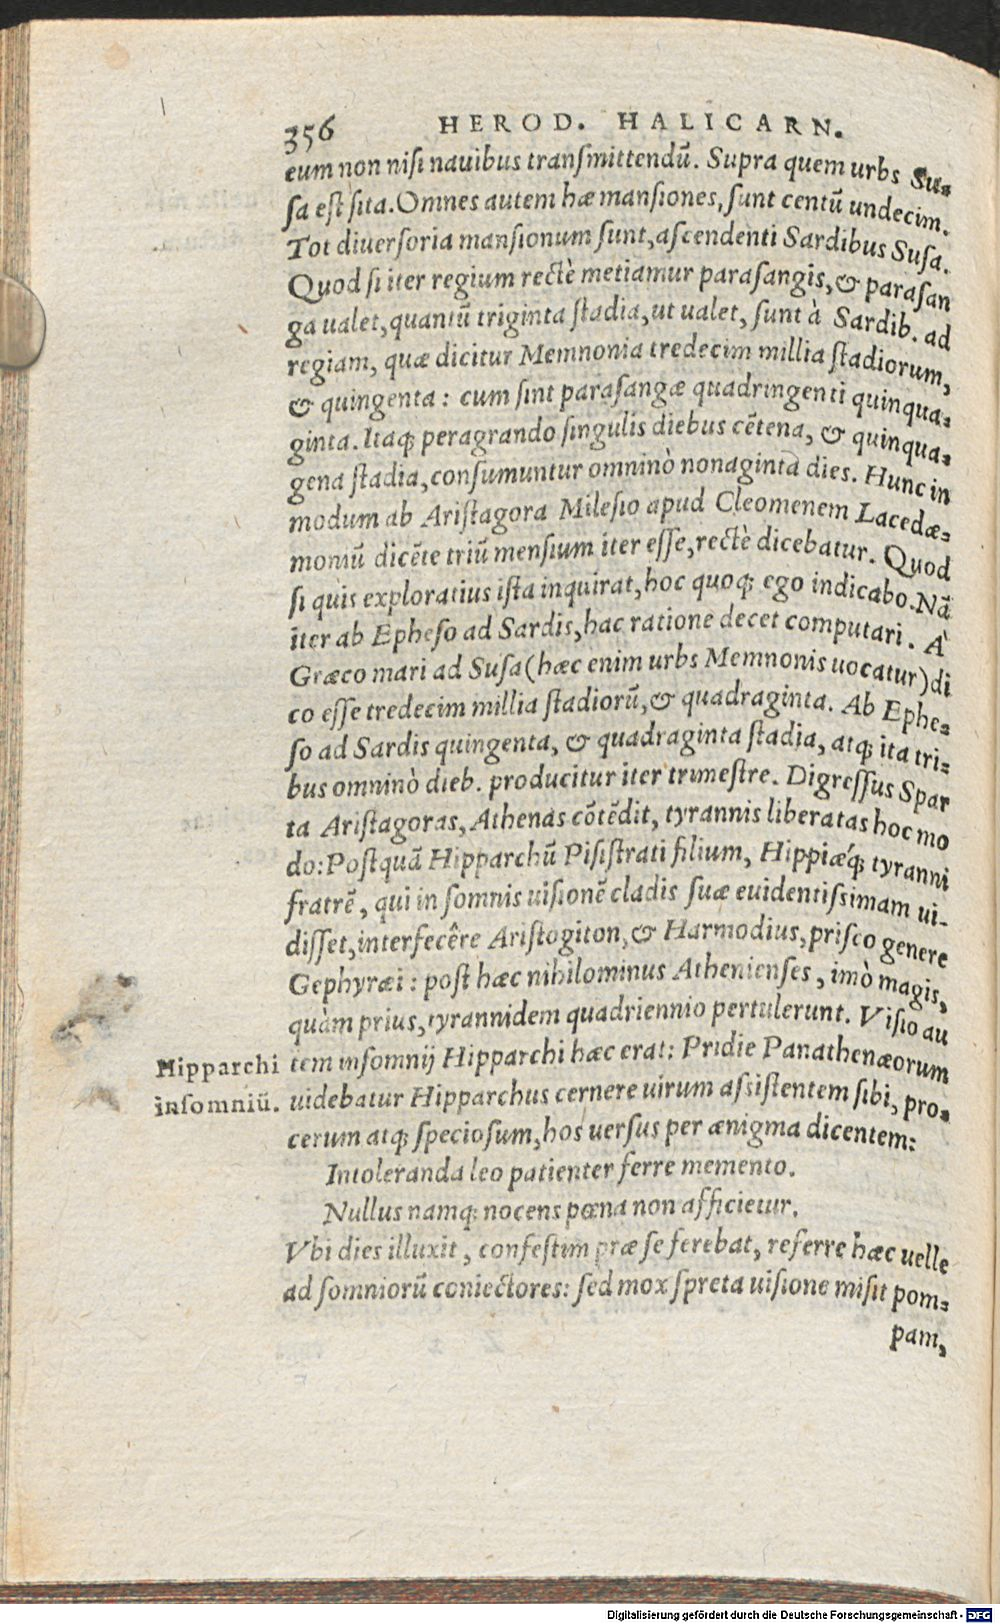 356 HEROD. HALICARN.
eum non nisi nauibus transmittendũ. Supra quem urbs Su-
sa est sita. Omnes autem hæ mansiones, sunt centũ undecim.
Tot diuersoria mansionum sunt, ascendenti Sardibus Susa.
Quod si iter regium rectè metiamur parasangis, & parasan
ga ualet, quantũ triginta stadia, ut ualet, sunt à Sardib. ad
regiam, quæ dicitur Memnonia tredecim millia stadiorum,
& quingenta: cum sint parasangæ quadringenti quinqua-
ginta. Itaq; peragrando singulis diebus cẽtena, & quinqua-
gena stadia, consumuntur omninò nonaginta dies. Hunc in
modum ab Aristagora Milesio apud Cleomenem Lacedæ-
moniũ dicẽte triũ mensium iter esse, rectè dicebatur. Quod
si quis exploratius ista inquirat, hoc quoq; ego indicabo. Nã
iter ab Epheso ad Sardis, hac ratione decet computari. À
Græco mari ad Susa (hæc enim urbs Memnonis uocatur) di
co esse tredecim millia stadiorũ, & quadraginta. Ab Ephe-
so ad Sardis quingenta, & quadraginta stadia, atq; ita tri-
bus omninò dieb. producitur iter trimestre. Digressus Spar
ta Aristagoras, Athenas cõtẽdit, tyrannis liberatas hoc mo
do: Postquã Hipparchũ Pisistrati filium, Hippiæq́; tyranni
fratrẽ, qui in somnis uisionẽ cladis suæ euidentissimam ui-
disset, interfecêre Aristogiton, & Harmodius, prisco genere
Gephyræi: post hæc nihilominus Athenienses, imò magis,
quàm prius, tyrannidem quadriennio pertulerunt. Visio au
tem insomnij Hipparchi hæc erat: Pridie Panathenæorum
Hipparchi
insomniũ.
uidebatur Hipparchus cernere uirum assistentem sibi, pro-
cerum atq; speciosum, hos uersus per ænigma dicentem:
Intoleranda leo patienter ferre memento.
Nullus namq; nocens pœna non afficietur.
Vbi dies illuxit, confestim præ se ferebat, referre hæc uelle
ad somniorũ coniectores: sed mox spreta uisione misit pom-
pam,
Digitalisierung gefördert durch die Deutsche Forschungsgemeinschaft - DFG